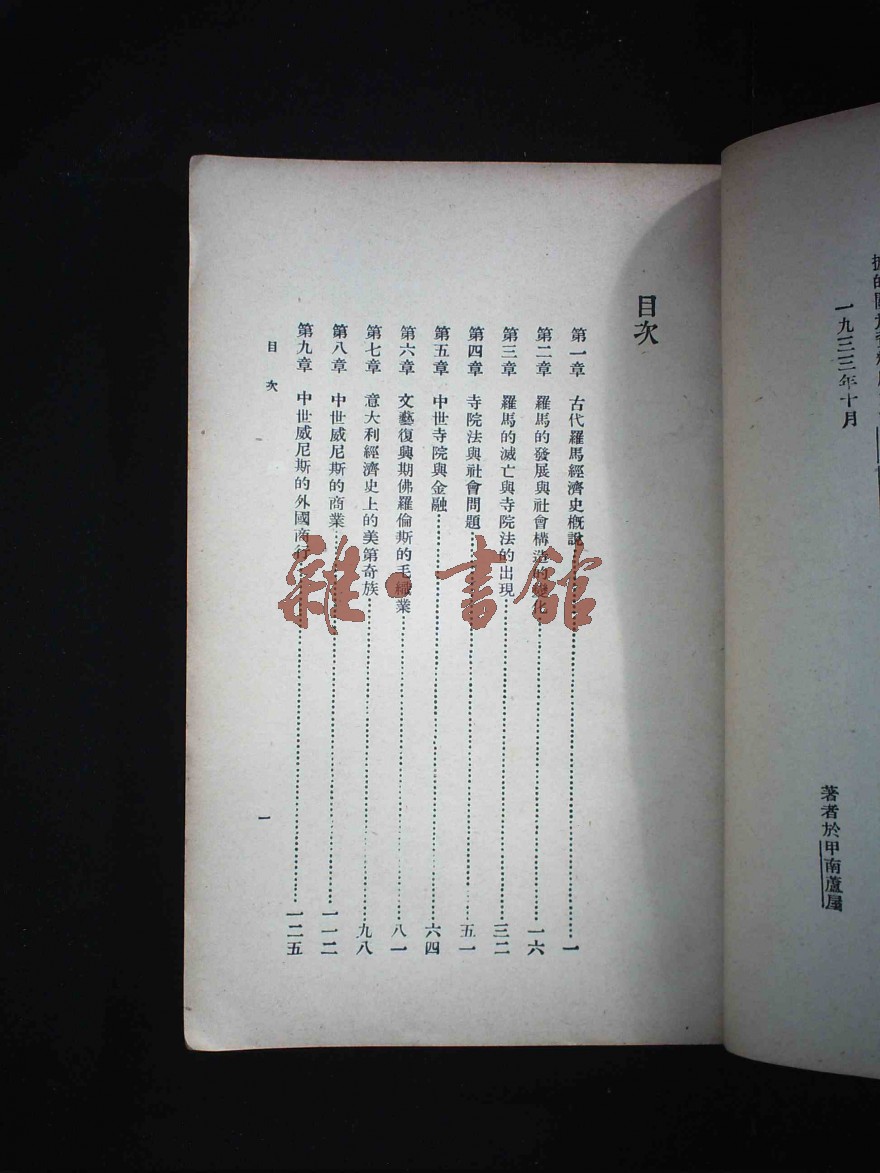 一九三三年十月
著者於甲南蘆屋
目次
第一章 古代羅馬經濟史概說……一
第二章 羅馬的發展與社會構造的變化……一六
第三章 羅馬的滅亡與寺院法的出現……三二
第四章 寺院法與社會問題……五一
第五章 中世寺院與金融……六四
第六章 文藝復興期佛羅倫斯的毛織業……八一
第七章 意大利經濟史上的美第奇族……九八
第八章 中世威尼斯的商業……一一二
第九章 中世威尼斯的外國商行……一二五
目次
一
雜·書館